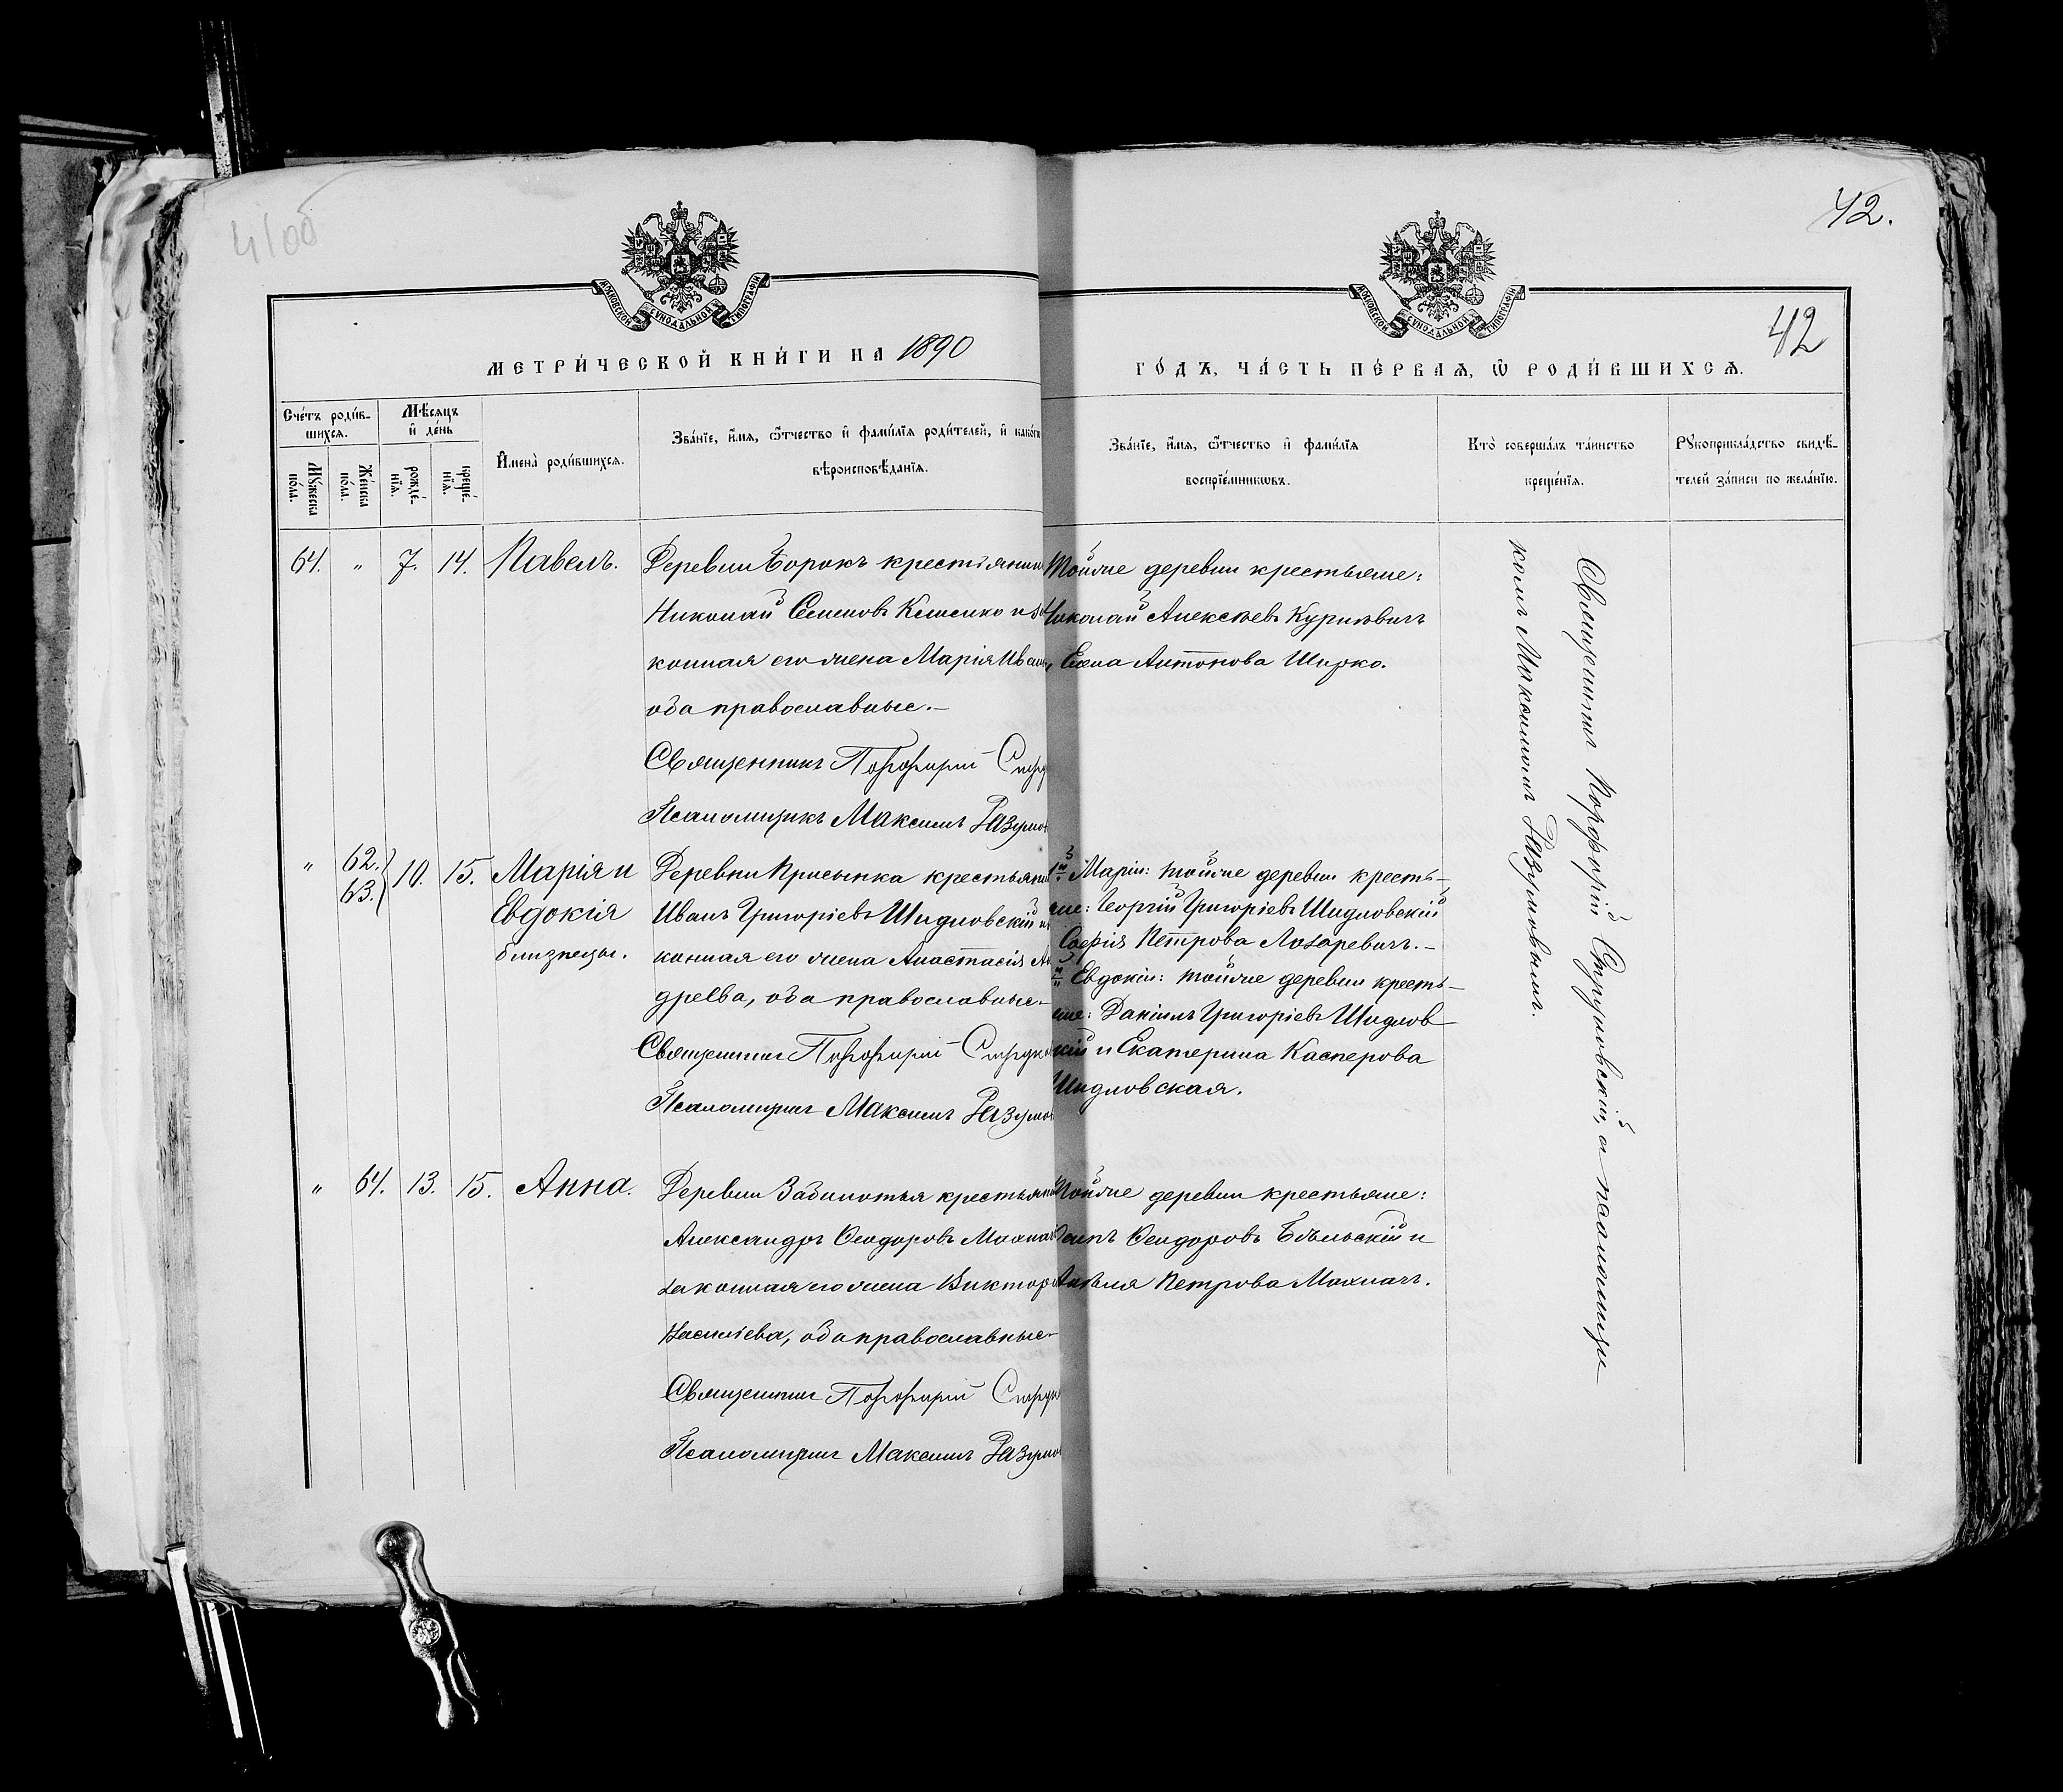 4100
42.
МОСКОВСКОЙ СѴНОДАЛЬНОЙ ТИПОГРАФІИ
МОСКОВСКОЙ СѴНОДАЛЬНОЙ ТИПОГРАФІИ
42
МЕТРИ́ЧЕСКОЙ КНИ́ГИ НА 1890
ГО́ДЪ, ЧА́СТЬ ПЕ́РВАѦ, Ѿ РОДИ́ВШИХСѦ.
Сче́тъ роди́в-
шихсѧ.
Мꙋ́жеска по́ла.
Же́нска по́ла.
Мѣ́сѧцъ
и҆ де́нь
рожде́-
нїѧ.
креще́-
нїѧ.
И҆мена̀ роди́вшихсѧ.
Зва́нїе, и҆́мѧ, ѻ҆́тчество и҆ фамѝлїѧ роди́телей, и҆ како́гѡ
вѣроисповѣ́данїѧ.
Зва́нїе, и҆́мѧ, ѻ҆́тчество и҆ фамѝлїѧ
воспрїе́мникѡвъ.
Кто̀ соверша́лъ та́инство
креще́нїѧ.
Рꙋкоприкла́дство свидѣ́-
телей за́писи по жела́нїю.
64. " 7. 14. Павелъ.
Деревни Борокъ крестьянин
Николай Семеновъ Клименко и за
конная его жена Марія Иван
оба православные.—
Священникъ Порфирій Струк
Псаломщикъ Максимъ Разумов
Тойже деревни крестьяне:
Николай Алексѣевъ Курилвичъ
Елена Антонова Ширко.
" 62. 63. 10. 15. Марія и
Евдокія
близнецы.
Деревни Присынка крестьянин
Иванъ Григоріевъ Шидловскій и
конная его жена Анастасія Ан
дреева, оба православные.—
Священникъ Порфирій Струко
Псаломщикъ Максимъ Разумо
1й Маріи: тойже деревни кресть-
яне: Георгій Григоріевъ Шидловскій
Софія Петрова Лазаревичъ.—
Евдокіи: тойже деревни кресть-
яне: Даніилъ Григоріевъ Шидлов
кій и Екатерина Касперова
Шидловская.
" 64. 13. 15. Анна.
Деревни Заболотья крестьянин
Александръ Ѳеодоровъ Махнач
законная его жена Виктор
Васильева, оба православные—
Священникъ Порфирій Струк
Псаломщикъ Максимъ Разумов
Тойже деревни крестьяне:
Осипъ Ѳеодоровъ Бѣльскій и
Петрова Махначъ.
Священникъ Порфирій Струковскій, съ псаломщи
комъ Максимомъ Разумовымъ.